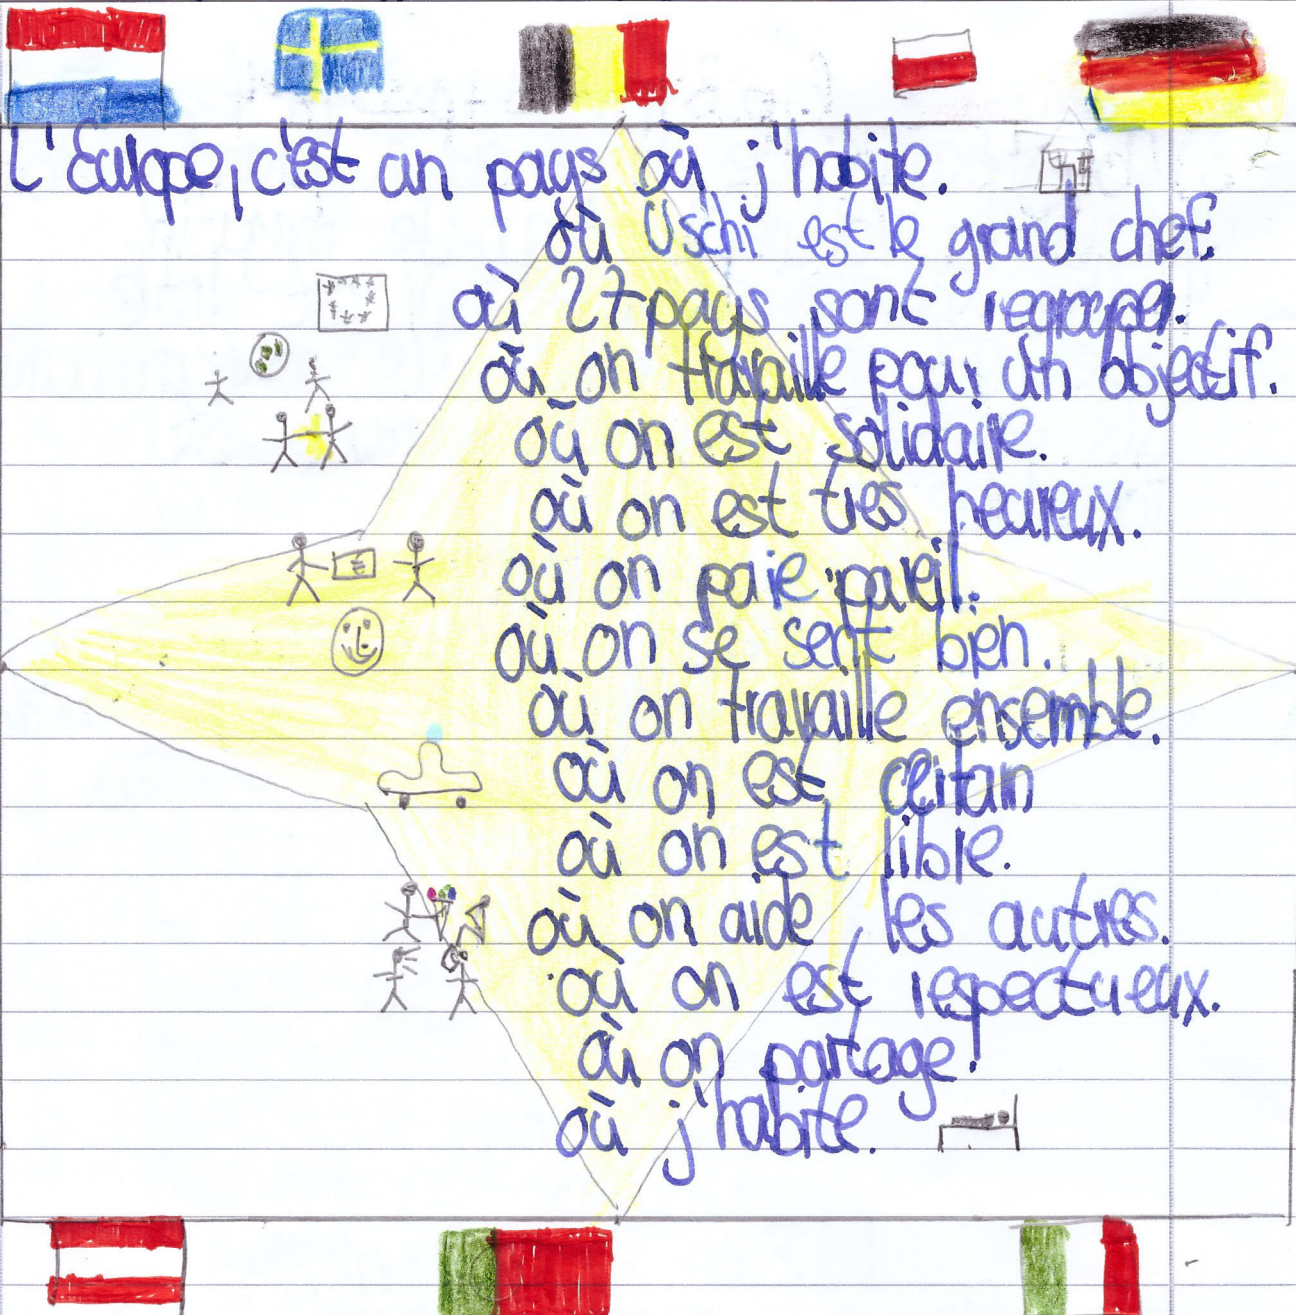 L'Europe, c'est un pays où j'habite.
où Uschi est le grand chef.
où 27 pays sont regrouper.
où on travaille pour un objectif.
où on est solidaire.
où on est très heureux.
où on paie pareil.
où on se sent bien.
où on travaille ensemble.
où on est certain
où on est libre.
où on aide les autres.
où on est respectueux.
où on partage!
où j'habite.